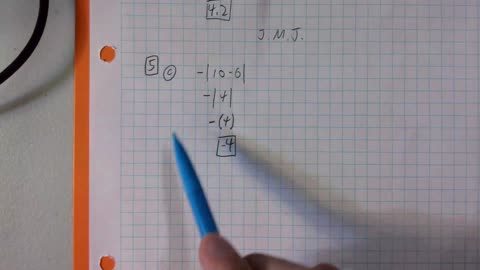 4.2
J.M.J.
5 c -|10-6|
-|4|
-(4)
-4